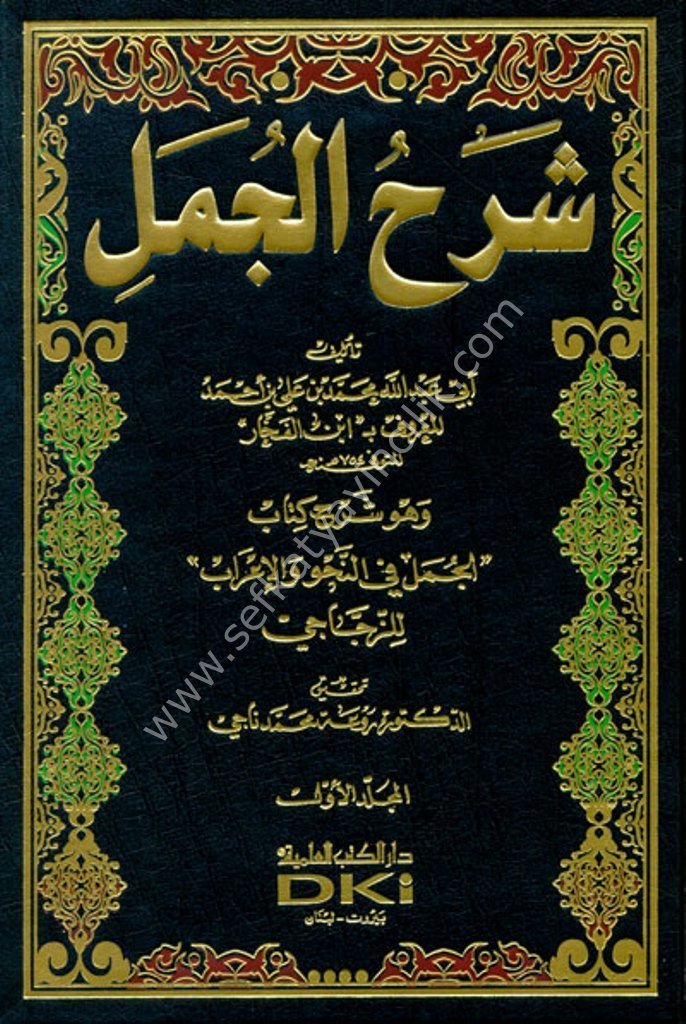 شَرْحُ الجُمَلِ
تأليف
أبي عبد الله محمد بن علي بن أحمد
المعروف بـ "ابن الفخار"
المتوفى ٧٥٤ هـ
وهو شرح كتاب
"الجمل في النحو والإعراب"
للزجاجي
تحقيق
الدكتورة روعة محمد ناجي
المجلد الأول
دار الكتب العلمية
DKi
بيروت - لبنان
www.sefkatyayincilik.com